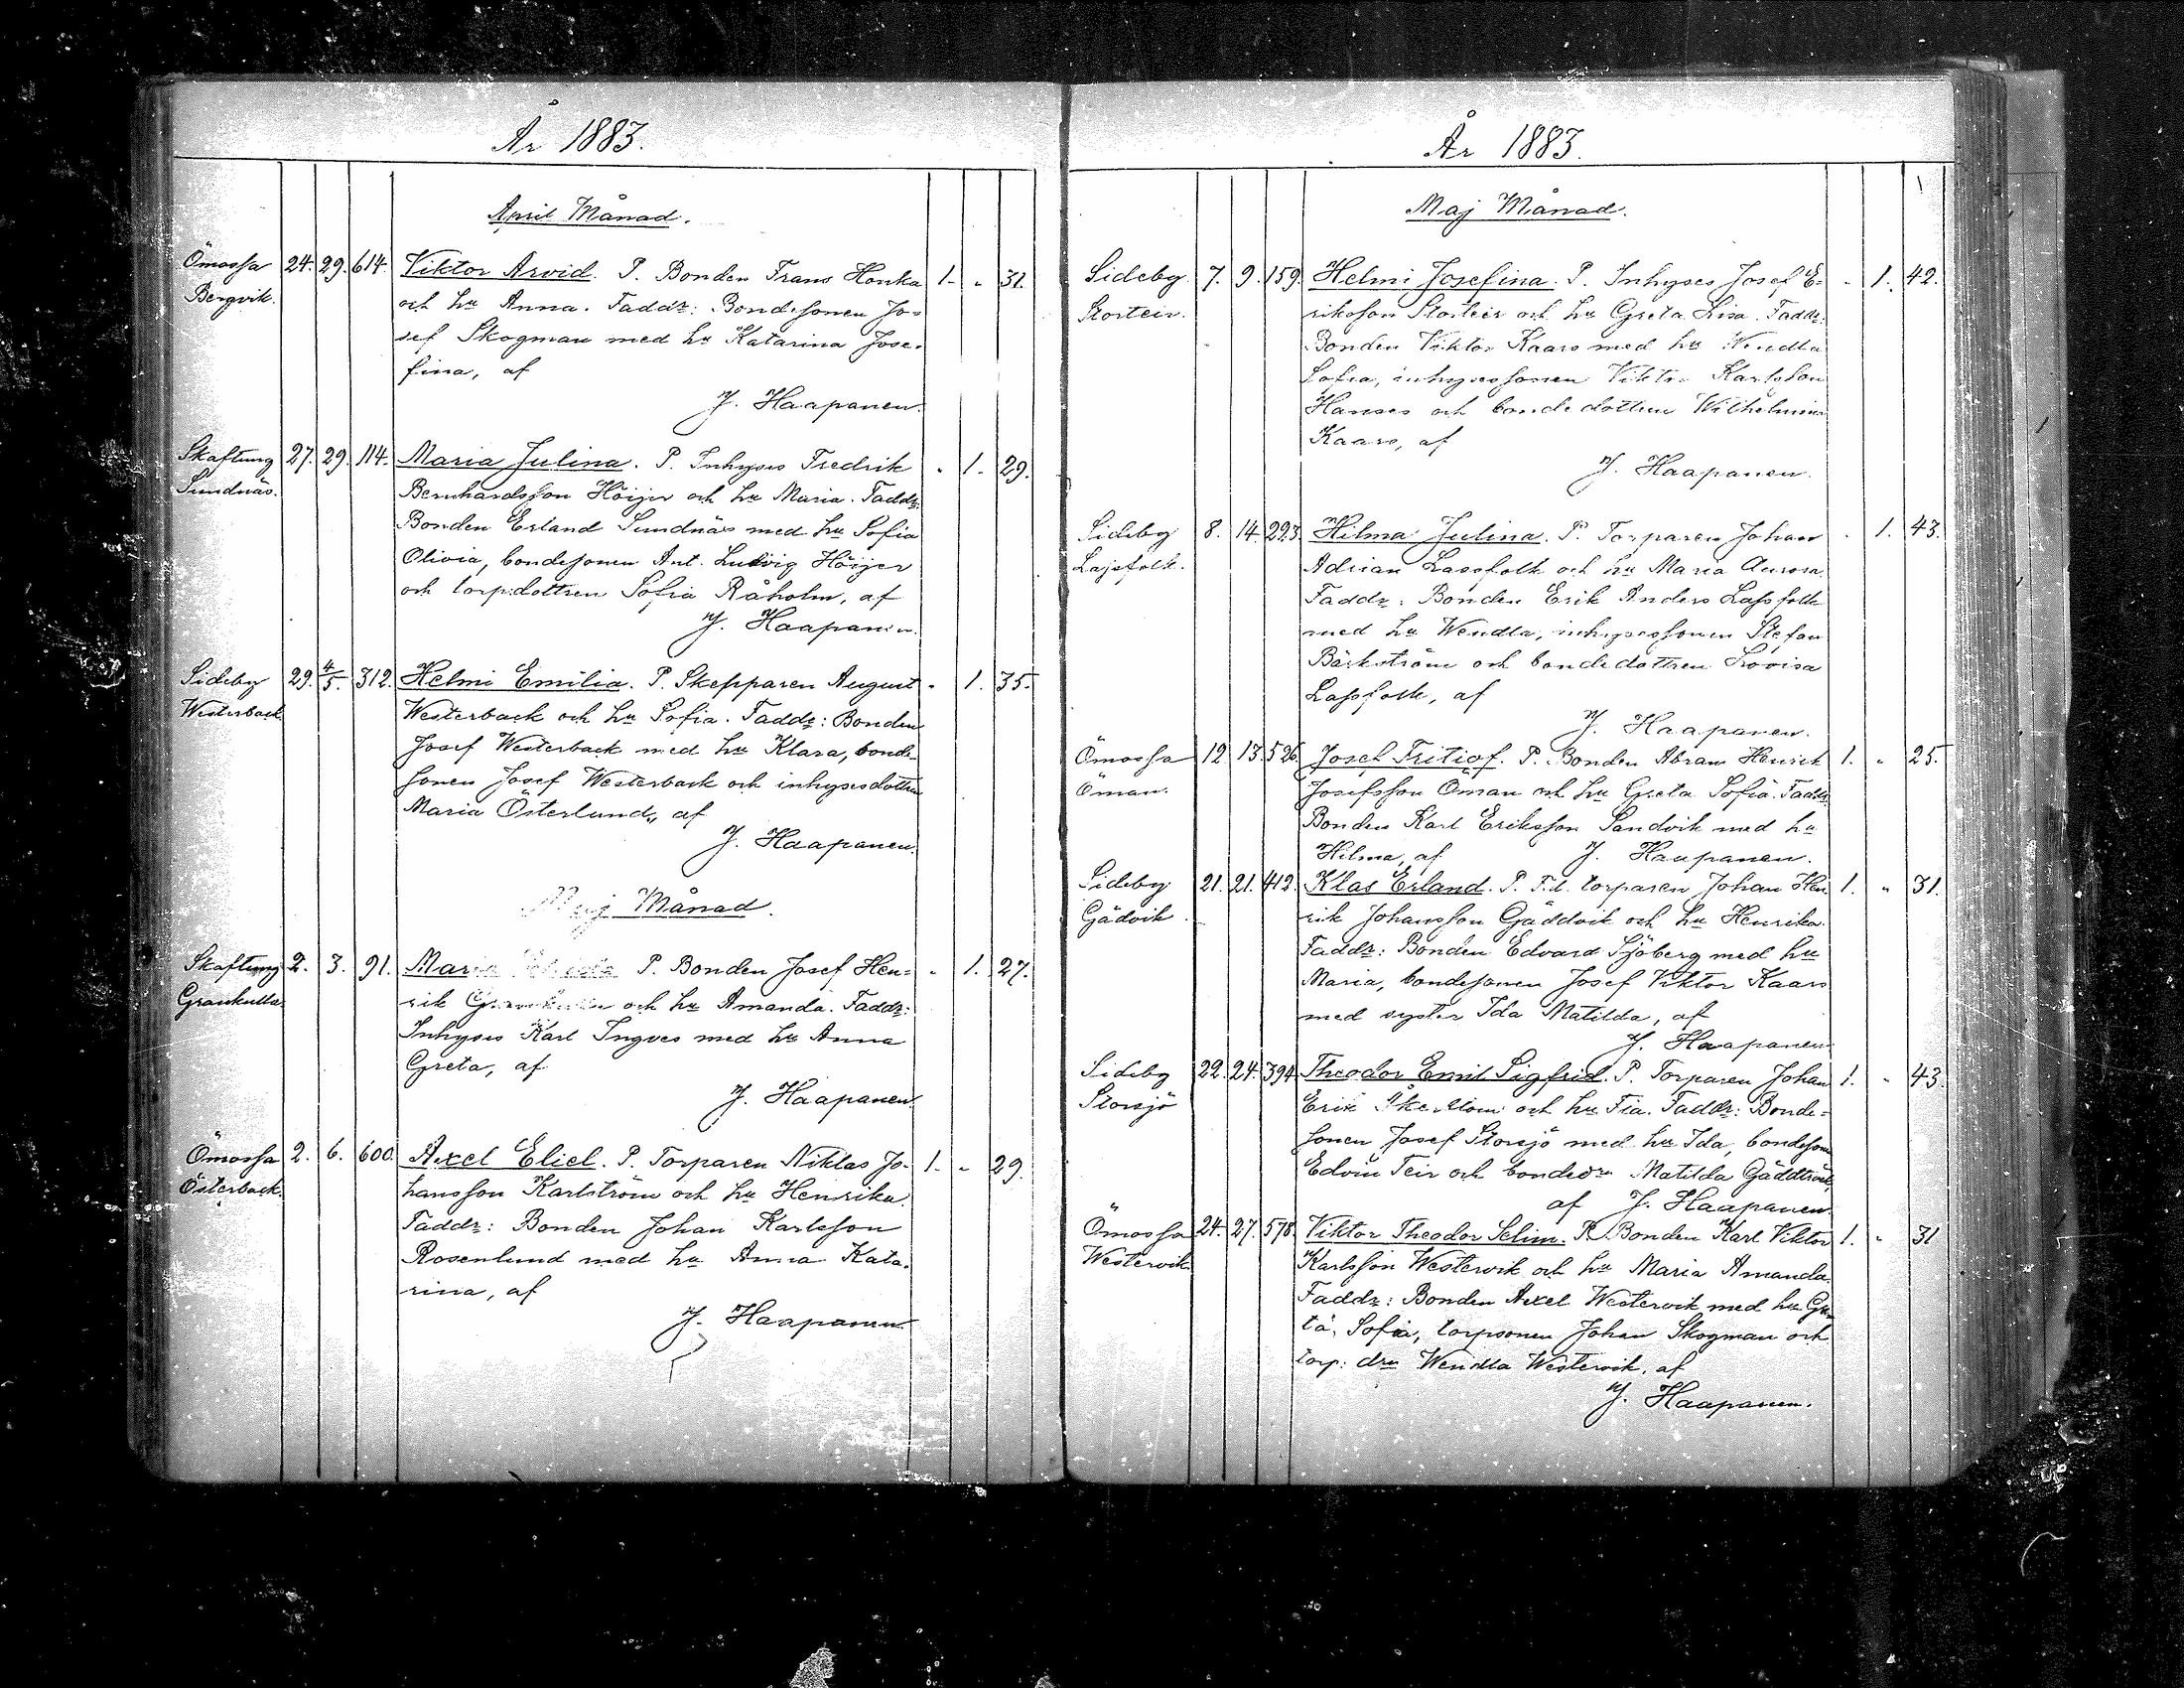 År 1883.
April Månad.
Ömossa 24. 29. 614. Viktor Arvid. P. Bonden Frans Honka 1. " 31.
Bergvik. och hu Anna. Faddr: Bondesonen Jo-
sef Skogman med hu Katarina Jose-
fina, af
J. Haapanen.
Skaftung 27. 29. 114. Maria Julina. P. Inhyses Fredrik " 1. 29.
Sundnäs. Bernhardsson Höijer och hu Maria. Faddr:
Bonden Erland Sundnäs med hu Sofia
Olivia, bondesonen Ant. Ludvig Höijer
och torp:dottren Sofia Råholm, af
J. Haapanen.
Sideby 29. 4/5. 312. Helmi Emilia. P. Skepparen August " 1. 35.
Westerback Westerback och hu Sofia. Faddr: Bonden
Josef Westerback med hu Klara, bonde-
sonen Josef Westerback och inhysesdottren
Maria Österlund, af
J. Haapanen.
Maj Månad.
Skaftung 2. 3. 91. Maria P. Bonden Josef Hen- " 1. 27.
Grankulla rik och hu Amanda. Faddr:
Inhyses Karl Ingves med hu Anna
Greta, af
J. Haapanen.
Ömossa 2. 6. 600. Axel Eliel. P. Torparen Niklas Jo- 1. " 29.
Österback. hansson Karlström och hu Henrika.
Faddr: Bonden Johan Karlsson
Rosenlund med hu Anna Kata-
rina, af
J. Haapanen
År 1883.
Maj Månad.
Sideby 7. 9. 159. Helmi Josefina. P. Inhyses Josef E- " 1. 42.
Storteir. riksson Storteir och hu Greta Lisa. Faddr:
Bonden Viktor Kaars med hu Wendla
Sofia, inhysessonen Viktor Karlsson
Hanses och bondedottren Wilhelmina
Kaars, af
J. Haapanen.
Sideby 8. 14. 223. Hilma Julina. P. Torparen Johan " 1. 43.
Lassfolk. Adrian Lassfolk och hu Maria Aurora.
Faddr: Bonden Erik Anders Lassfolk
med hu Wendla, inhysessonen Stefan
Bäckström och bondedottren Lovisa
Lassfolk, af
J. Haapanen.
Ömossa 12 13. 526. Josef Fritiof. P. Bonden Abram Henrik 1. " 25.
Öman. Josefsson Öman och hu Greta Sofia. Faddr:
Bonden Karl Eriksson Sandvik med hu
Hilma, af J. Haapanen.
Sideby 21. 21. 412. Klas Erland. P. F.d. torparen Johan Hen 1. " 31.
Gädvik. rik Johansson Gäddvik och hu Henrika.
Faddr: Bonden Edvard Sjöberg med hu
Maria, bondesonen Josef Viktor Kaars
med syster Ida Matilda, af
J. Haapanen
Sideby 22. 24. 394. Theodor Emil Sigfrid. P. Torparen Johan 1. " 43.
Storsjö Erik och hu Fia. Faddr: Bonde-
sonen Josef Storsjö med hu Ida, bondeson
Edvin Teir och bondedrn Matilda
af J. Haapanen
Ömossa 24. 27. 578. Viktor Theodor Selim. P. Bonden Karl Viktor 1. " 31
Westervik Karlsson Westervik och hu Maria Amanda.
Faddr: Bonden Axel Westervik med hu Gre-
ta Sofia, torpsonen Johan Skogman och
torp: drn Wendla Westervik, af
J. Haapanen.